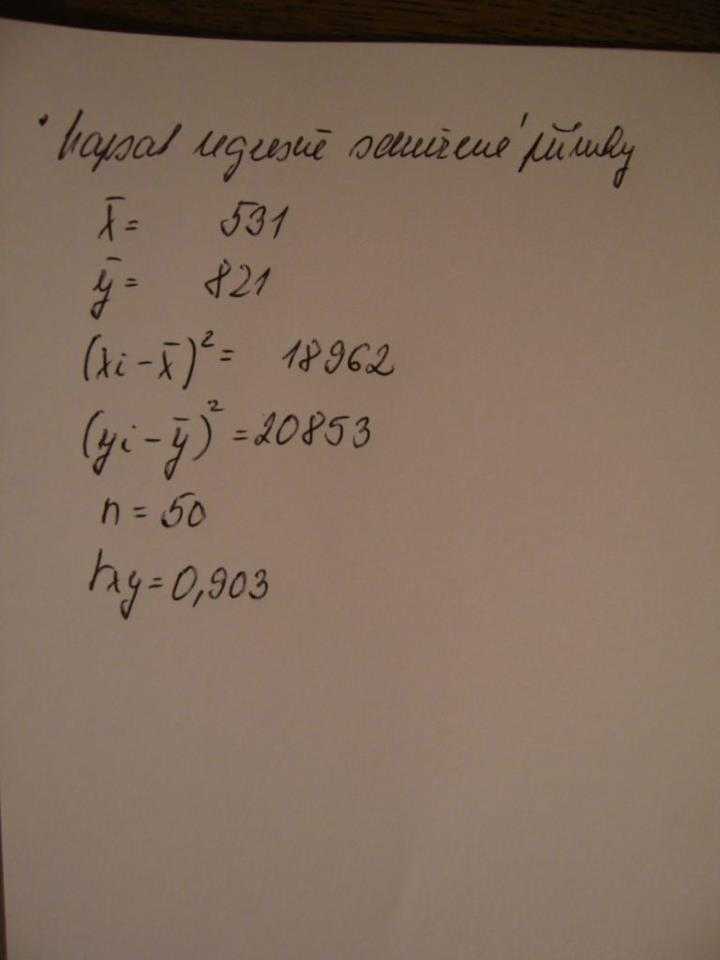 • Napsat regresně sdružené přímky
x̄ = 531
ȳ = 821
(xi - x̄)² = 18962
(yi - ȳ)² = 20853
n = 50
rxy = 0,903